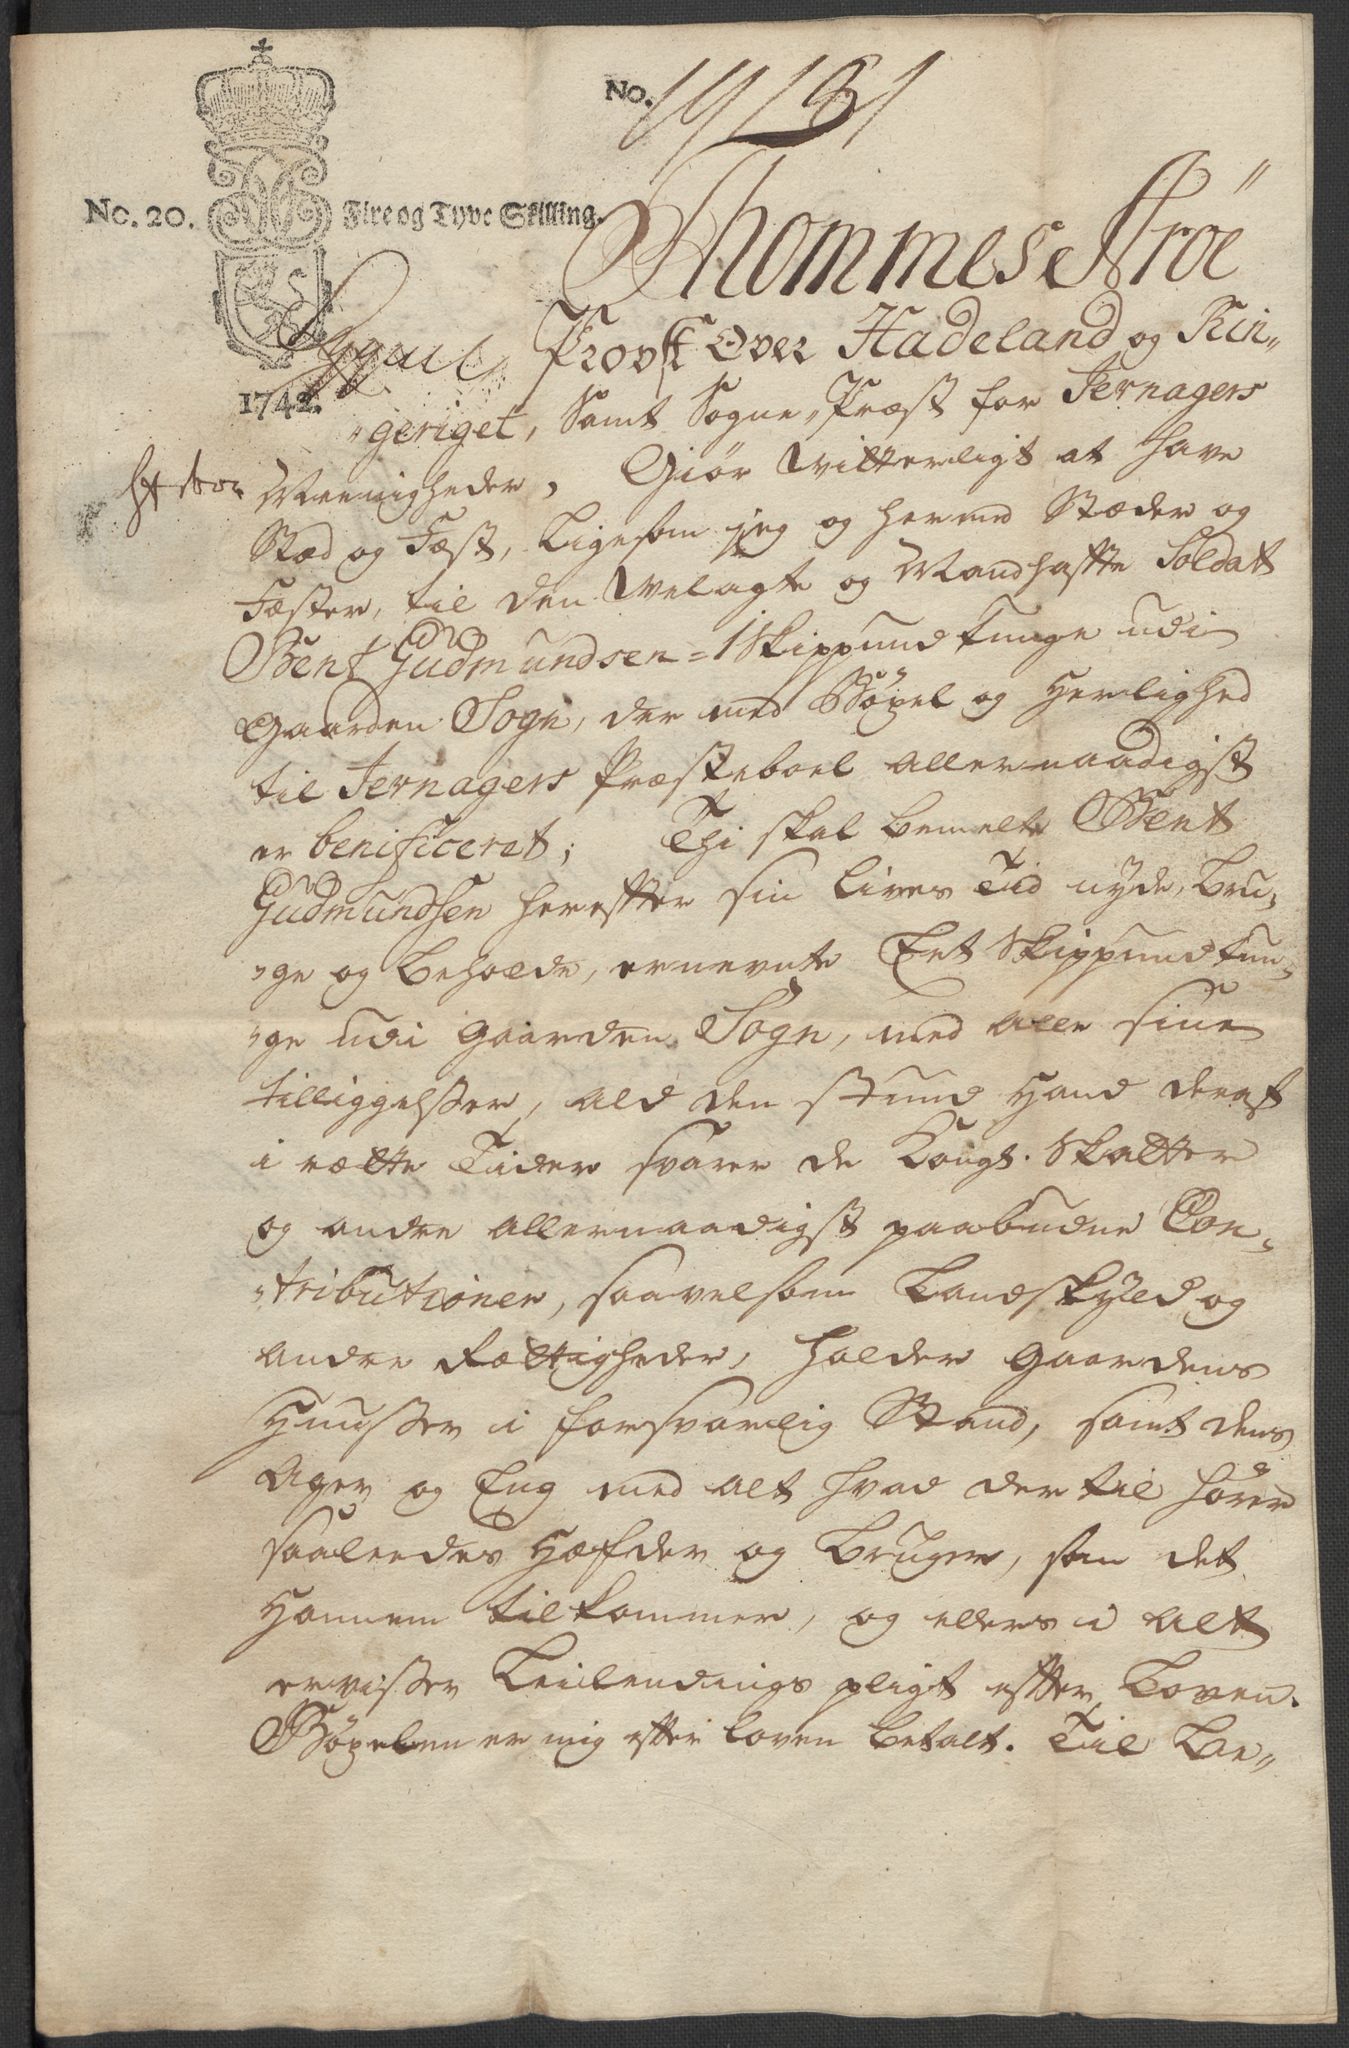 No.
No. 20. Fire og Tyve Skilling.
Thommes Aroë
Provst over Hadeland og Rin„
1742.
„geriget, Samt Sogne„Præst for Jernagers
Meenigheder, Giör vitterligt at have
Stæd og Fæst, ligesom jeg og hermed Stæder og
Fæster, til den Velagte og Mandhaffte Soldat
Bent Gudmundsen = 1 Skippund tunge udi
Gaarden Sogn, der med Böxel og Herlighed
til Jernagers Præsteboel allernaadigst
er benificeret; Thi skal bemelte Bent
Gudmundsen herefter sin Lives Tid nyde, bru„
„ge og beholde, ernevnte Eet Skippund tun„
„ge udi Gaarden Sogn, med alle sine
tilliggelsser, ald den stund Hand deraf
i rætte Tider svarer de Kongl. Skatter
og andre allernaadigst paabudne Con„
„tributioner, saavelsom Landskyld og
andre Rættigheder, holder Gaardens
Huusser i forsvarlig Stand, samt dens
Ager og Eng med alt hvad der til hörer
saaleedes Hæfder og bruger, som det
Hannem tilkommer, og ellers i alt
erviser Leilendings pligt efter Loven.
Böxelen er mig efter loven betalt. Til Be„